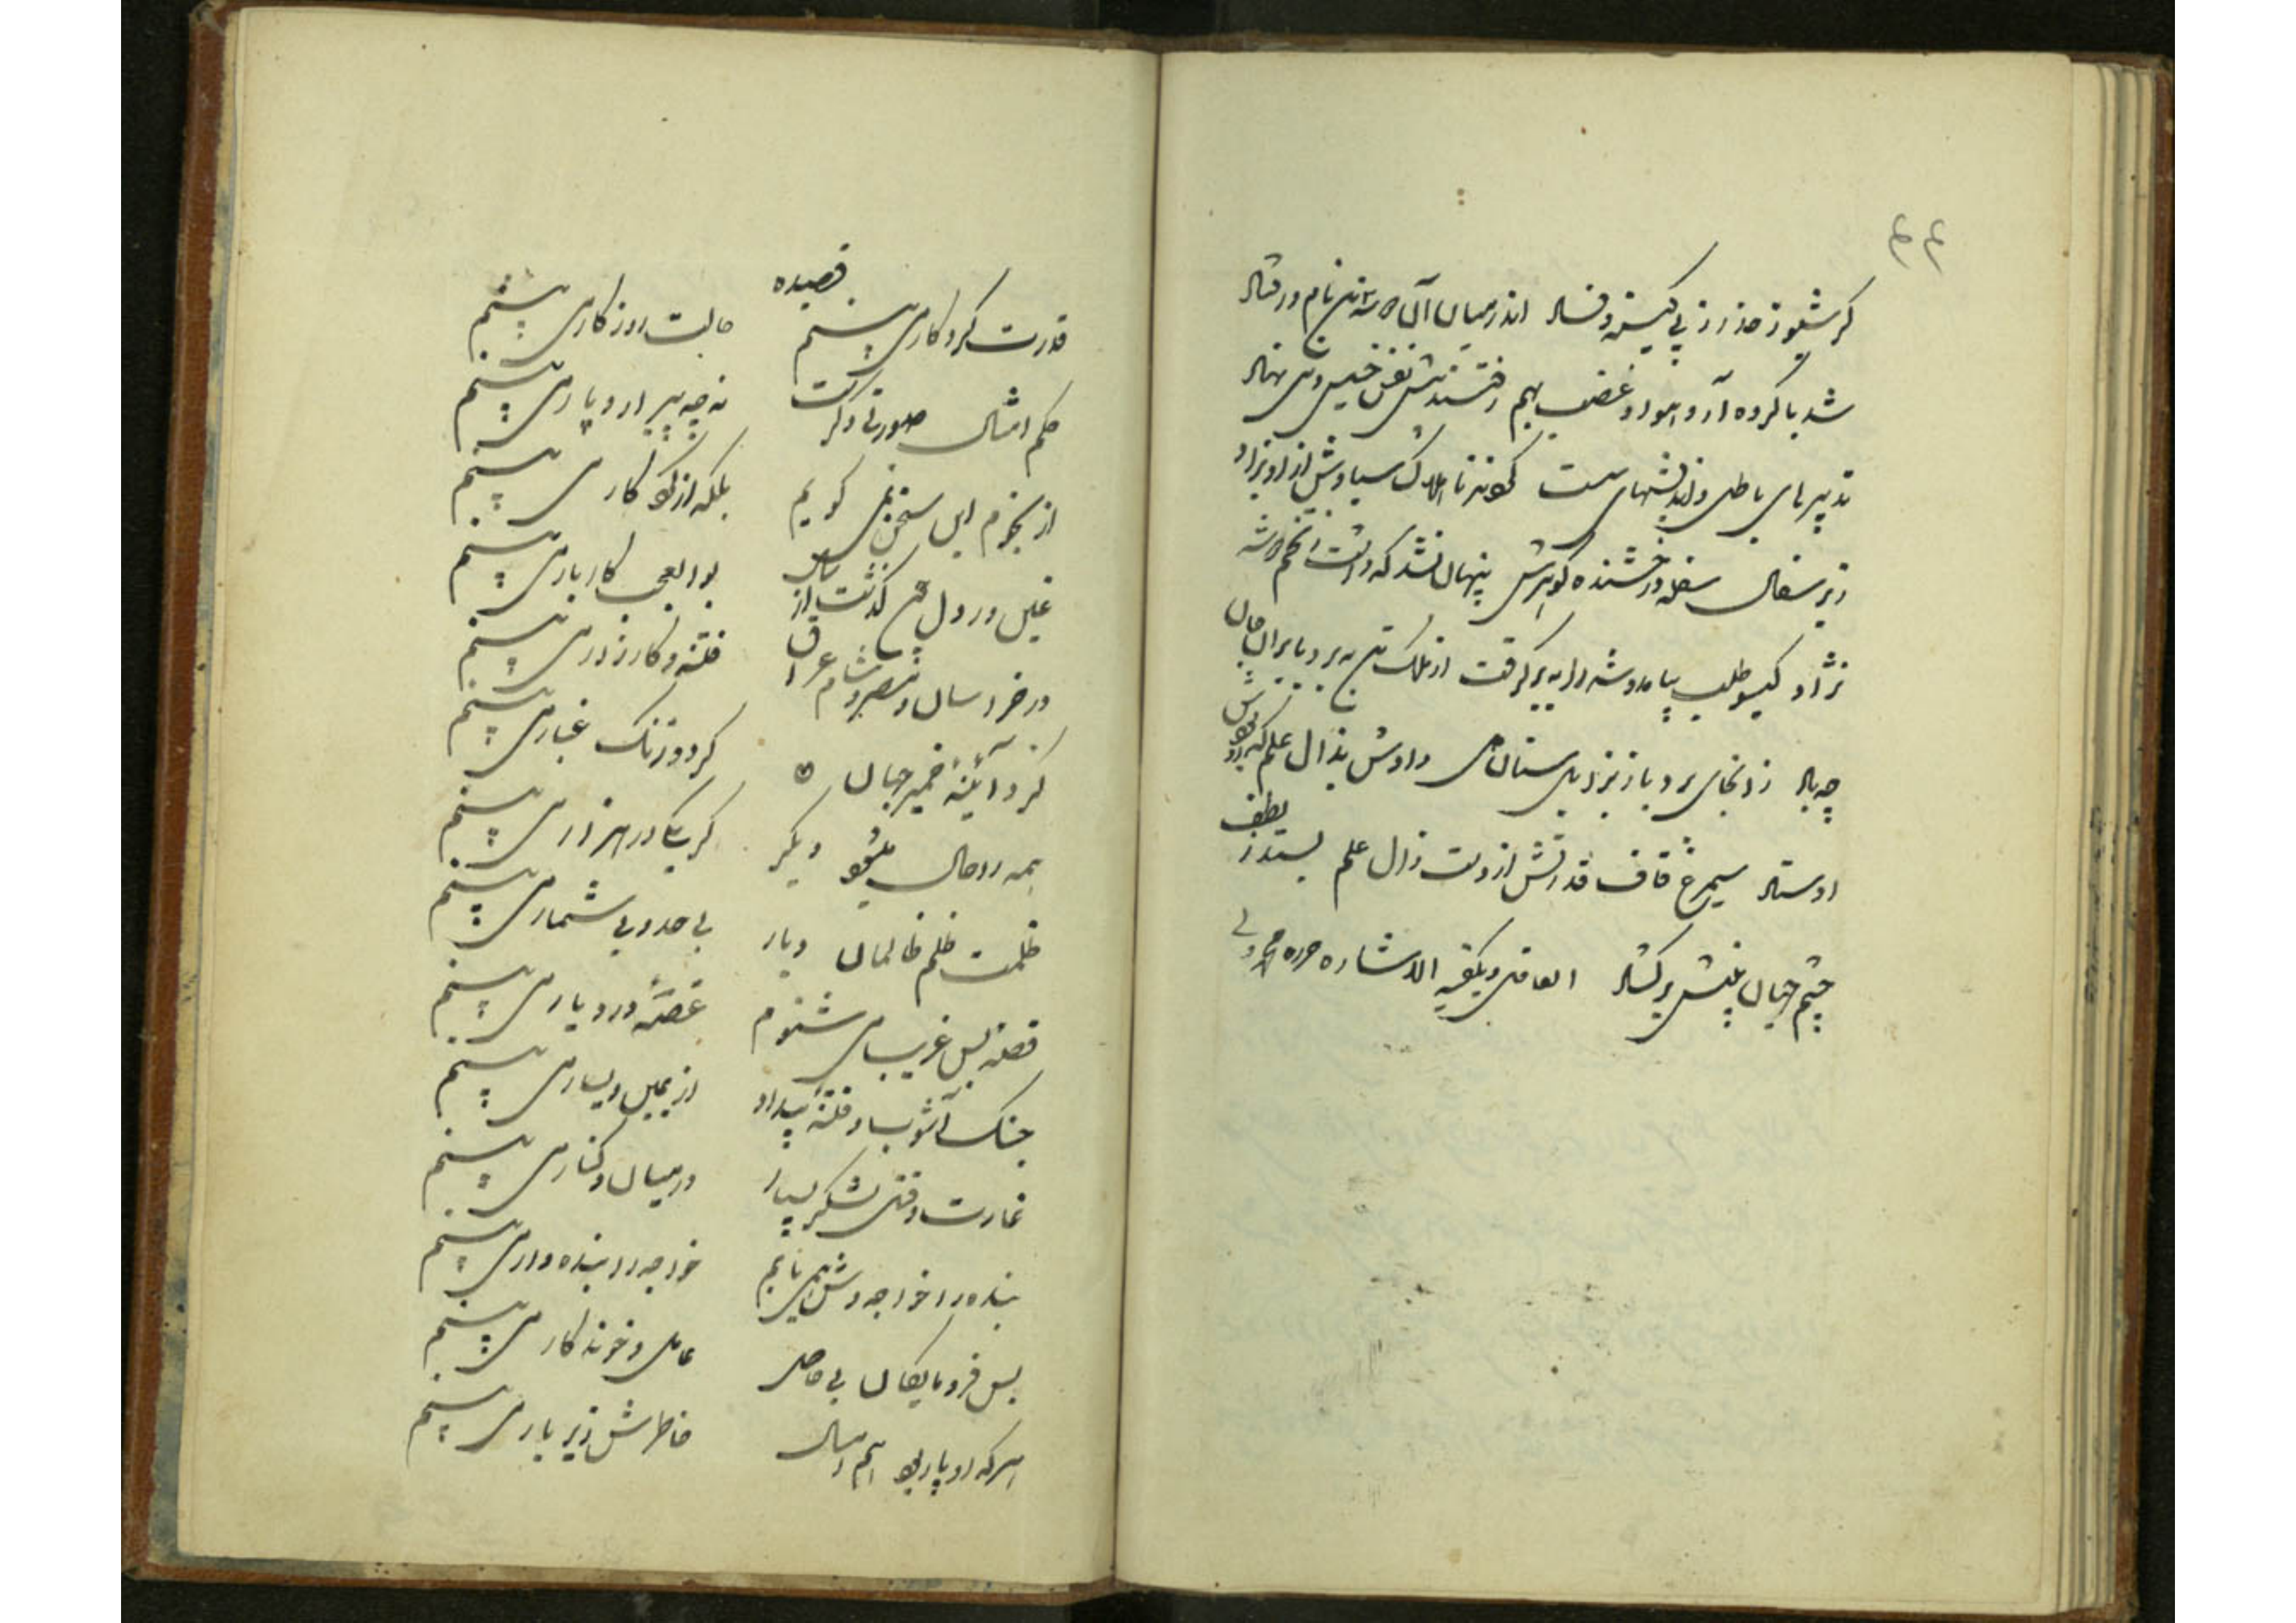 ۴۴
کرشیوز حذر ز پی کینه و فساد اندر میان آن شه نام در فتاد
شد با کروه آز و هوا و غضب بهم رفتند پیش نفس خسیس دنی نهاد
تدبیرهای باطل و اندیشهای سست کردند تا هلاک سیاوش از او بزاد
زیر سفال سفله درخشنده کوهرش پنهان نشد که داشت ز تخم شه
نژاد کیو طلب بیامد و شه را به برگرفت از ملک تن به برد با یران جان
چه باد زانجای برد باز بزابلستان دل دادش بزال علم که او بود
اوستاد سیمرغ قاف قدرتش از دست زال علم بستد ز لطف
چشم جهان بینش برکشاد العاقل ویکفیه الاشاره
قصیده
قدرت کردکار می بینم حالت روزکار می بینم
حکم امثال صورتی دکر است نه چه پیرار و پار می بینم
از نجوم این سخن نمی کویم بلکه از کردکار می بینم
عین و را و دال چون کذشت از سال بوالعجب کاربار می بینم
در خراسان و مصر و شام و عراق فتنه و کارزار می بینم
کرد آئینهٔ ضمیر جهان کرد و زنک و غبار می بینم
همه را حال میشود دیکر کر یکی در هزار می بینم
ظلمت ظلم ظالمان دیار بی حد و بی شمار می بینم
قصهٔ بس غریب می شنوم غصهٔ در دیار می بینم
جنک آشوب و فتنه و بیداد از یمین و یسار می بینم
غارت و قتل لشکر بسیار در میان و کنار می بینم
بنده را خواجه وش همی یابم خواجه را بنده وار می بینم
بس فرومایکان بی حاصل عامل و خوندکار می بینم
هر که او پار بود هم امسال خاطرش زیر بار می بینم